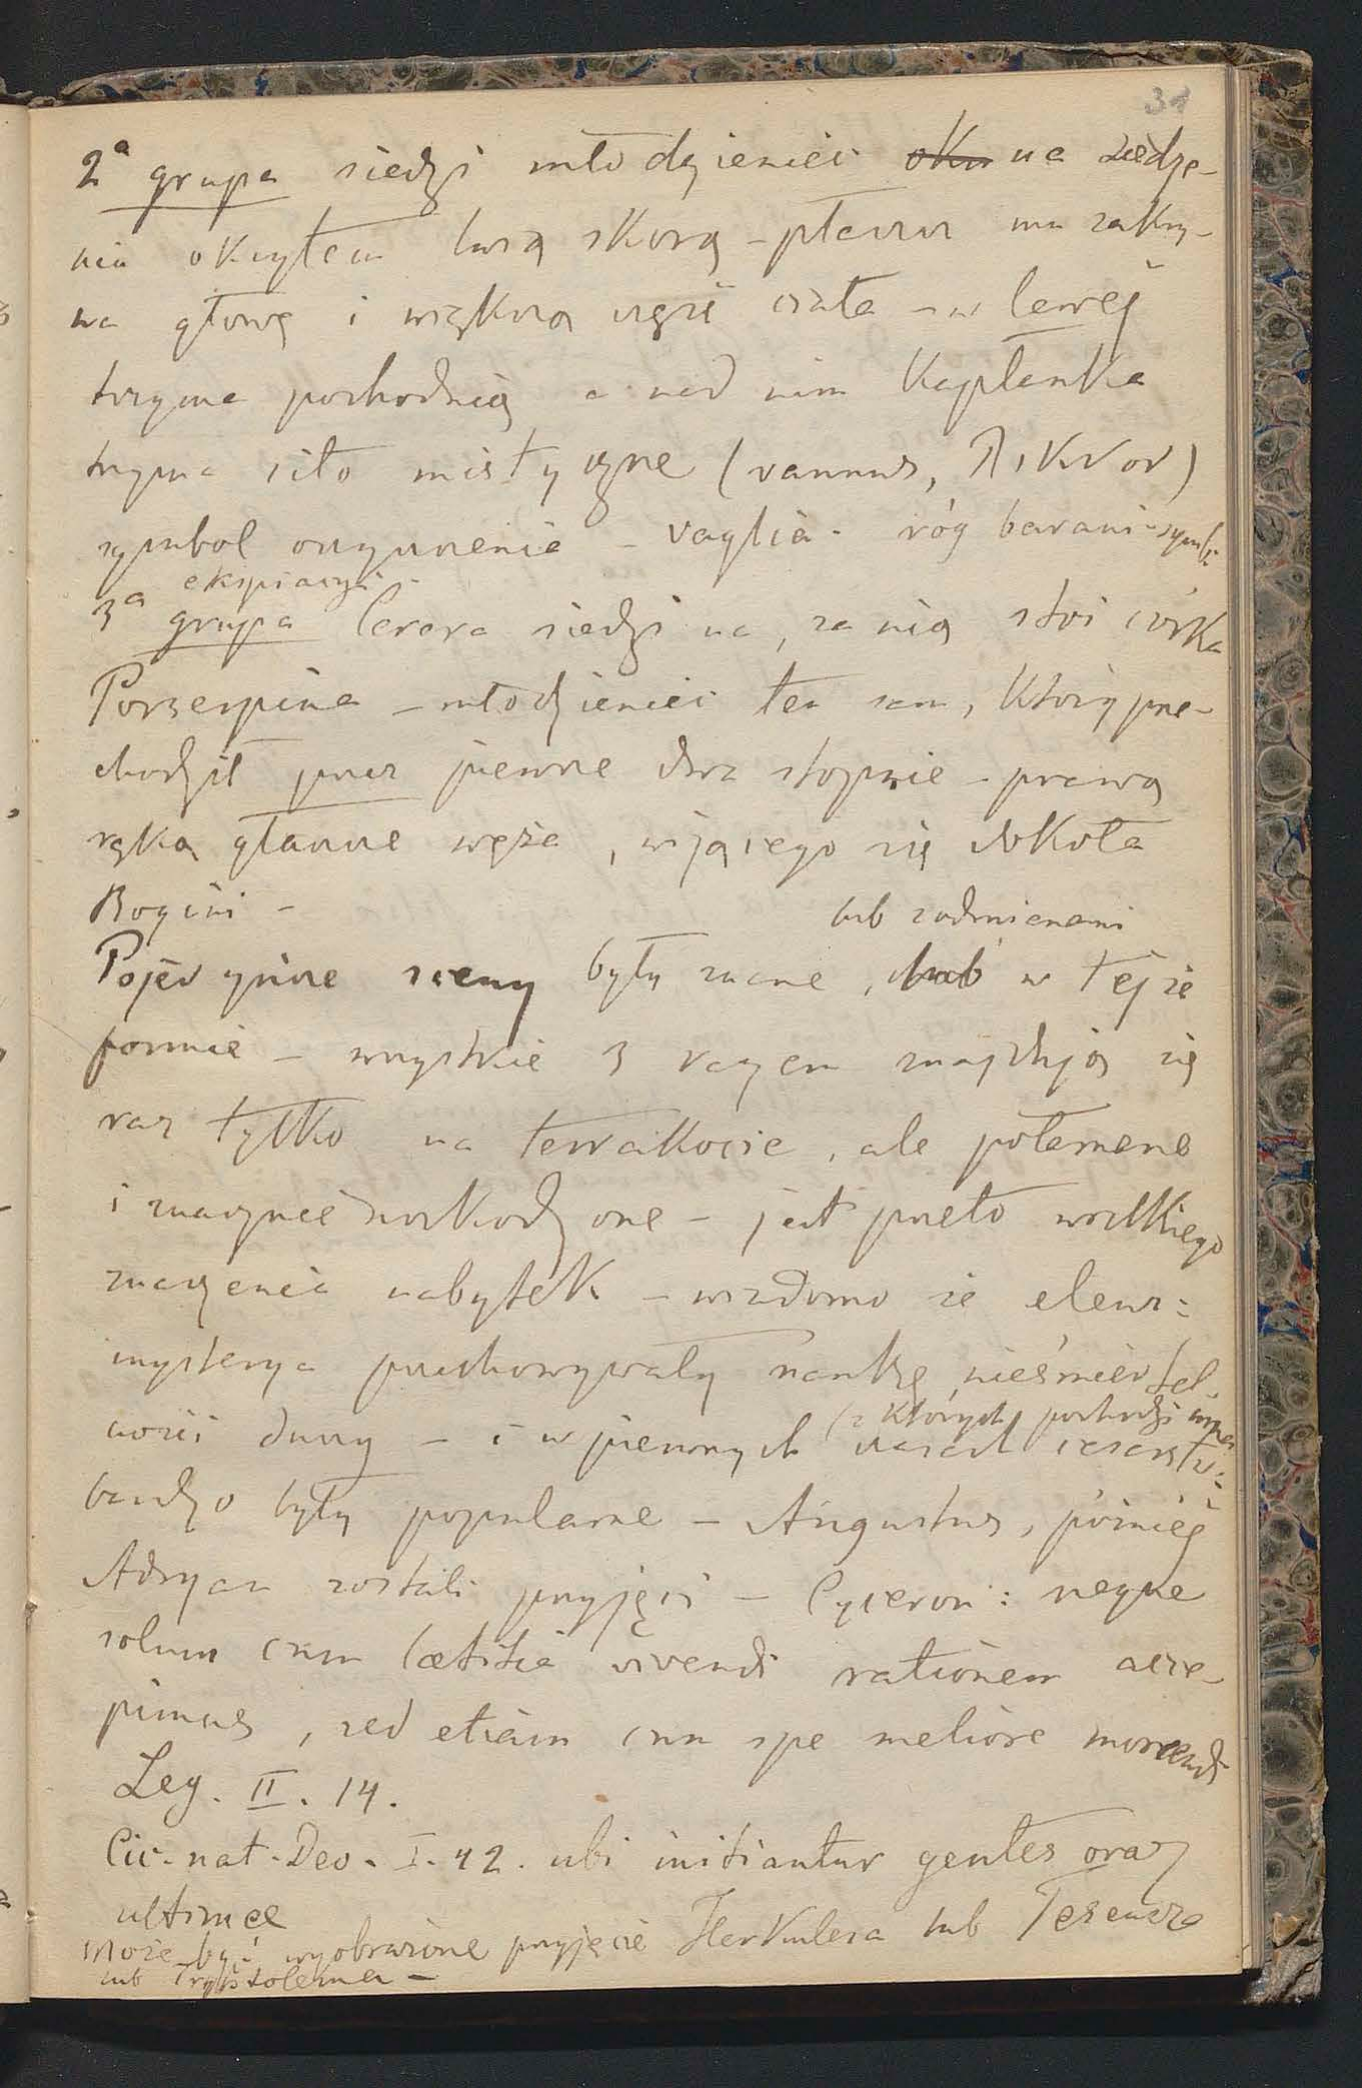 31
2a grupa siedzi młodzieniec okn na siedze-
niu okrytem lwią skórą - płaszcz mu zakry-
wa głowę i większą część ciała - w lewej
trzyma pochodnię a nad nim Kapłanka
trzyma sito mistyczne (vannus, λικνον)
symbol oczyszczenia - vaglia - róg barani - symb:
ekspiacyi -
3a grupa Cerera siedzi na, za nią stoi córka
Porzerpina - młodzieniec ten sam, który prze-
chodził przez pierwsze dwa stopnie - prawą
ręką głaszcze węża, wijącego się dokoła
Bogini -
lub zodmianami
Pojedyńcze sceny były znane, lub w tejże
formie - wszystkie 3 razem znajdują się
raz tylko na terrakocie, ale połamane
i znacznie uszkodzone - jest przeto wielkiego
znaczenia nabytek - wiadomo że eleuz:
mysterya przechowywały naukę nieśmiertel-
(z których pochodzi
ności duszy - i w pierwszych czasach cesarstw:
bardzo były popularne - Augustus, później
Adryan zostali przyjęci - Cyceron: neque
solum cum lætitia vivendi rationem acce-
pimus, sed etiam cum spe meliore moriendi
Leg. II. 14.
Cic. nat. Deo. I. 42. ubi initiantur gentes oraz
ultimæ
może być wyobrażone przyjęcie Herkulesa lub Tezeusza
lub Tryptolema -